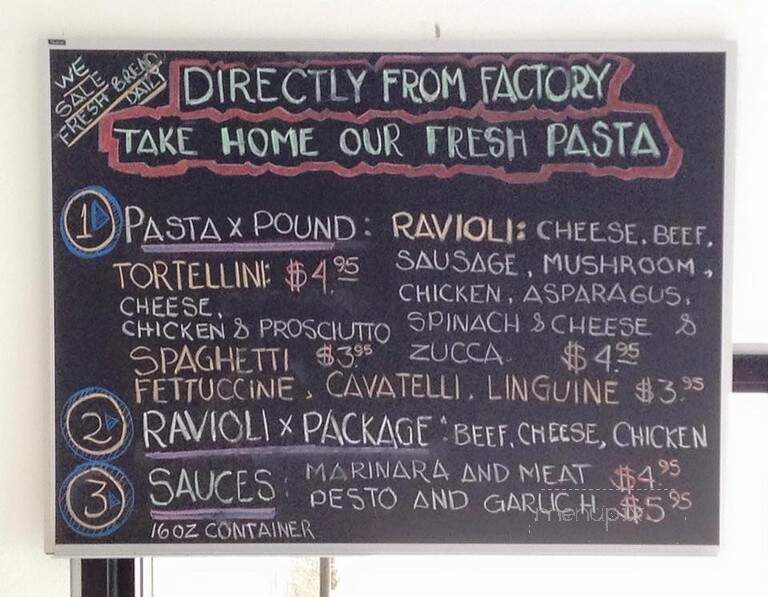 WE
SALE
FRESH BREAD
DAILY
DIRECTLY FROM FACTORY
TAKE HOME OUR FRESH PASTA
1 PASTA X POUND:
TORTELLINI: $4.95
CHEESE,
CHICKEN & PROSCIUTTO
SPAGHETTI $3.95
RAVIOLI: CHEESE, BEEF,
SAUSAGE, MUSHROOM,
CHICKEN, ASPARAGUS,
SPINACH & CHEESE &
ZUCCA $4.95
FETTUCCINE, CAVATELLI, LINGUINE $3.95
2 RAVIOLI X PACKAGE: BEEF, CHEESE, CHICKEN
3 SAUCES: MARINARA AND MEAT $4.95
PESTO AND GARLIC H $5.95
16 OZ CONTAINER
menupix